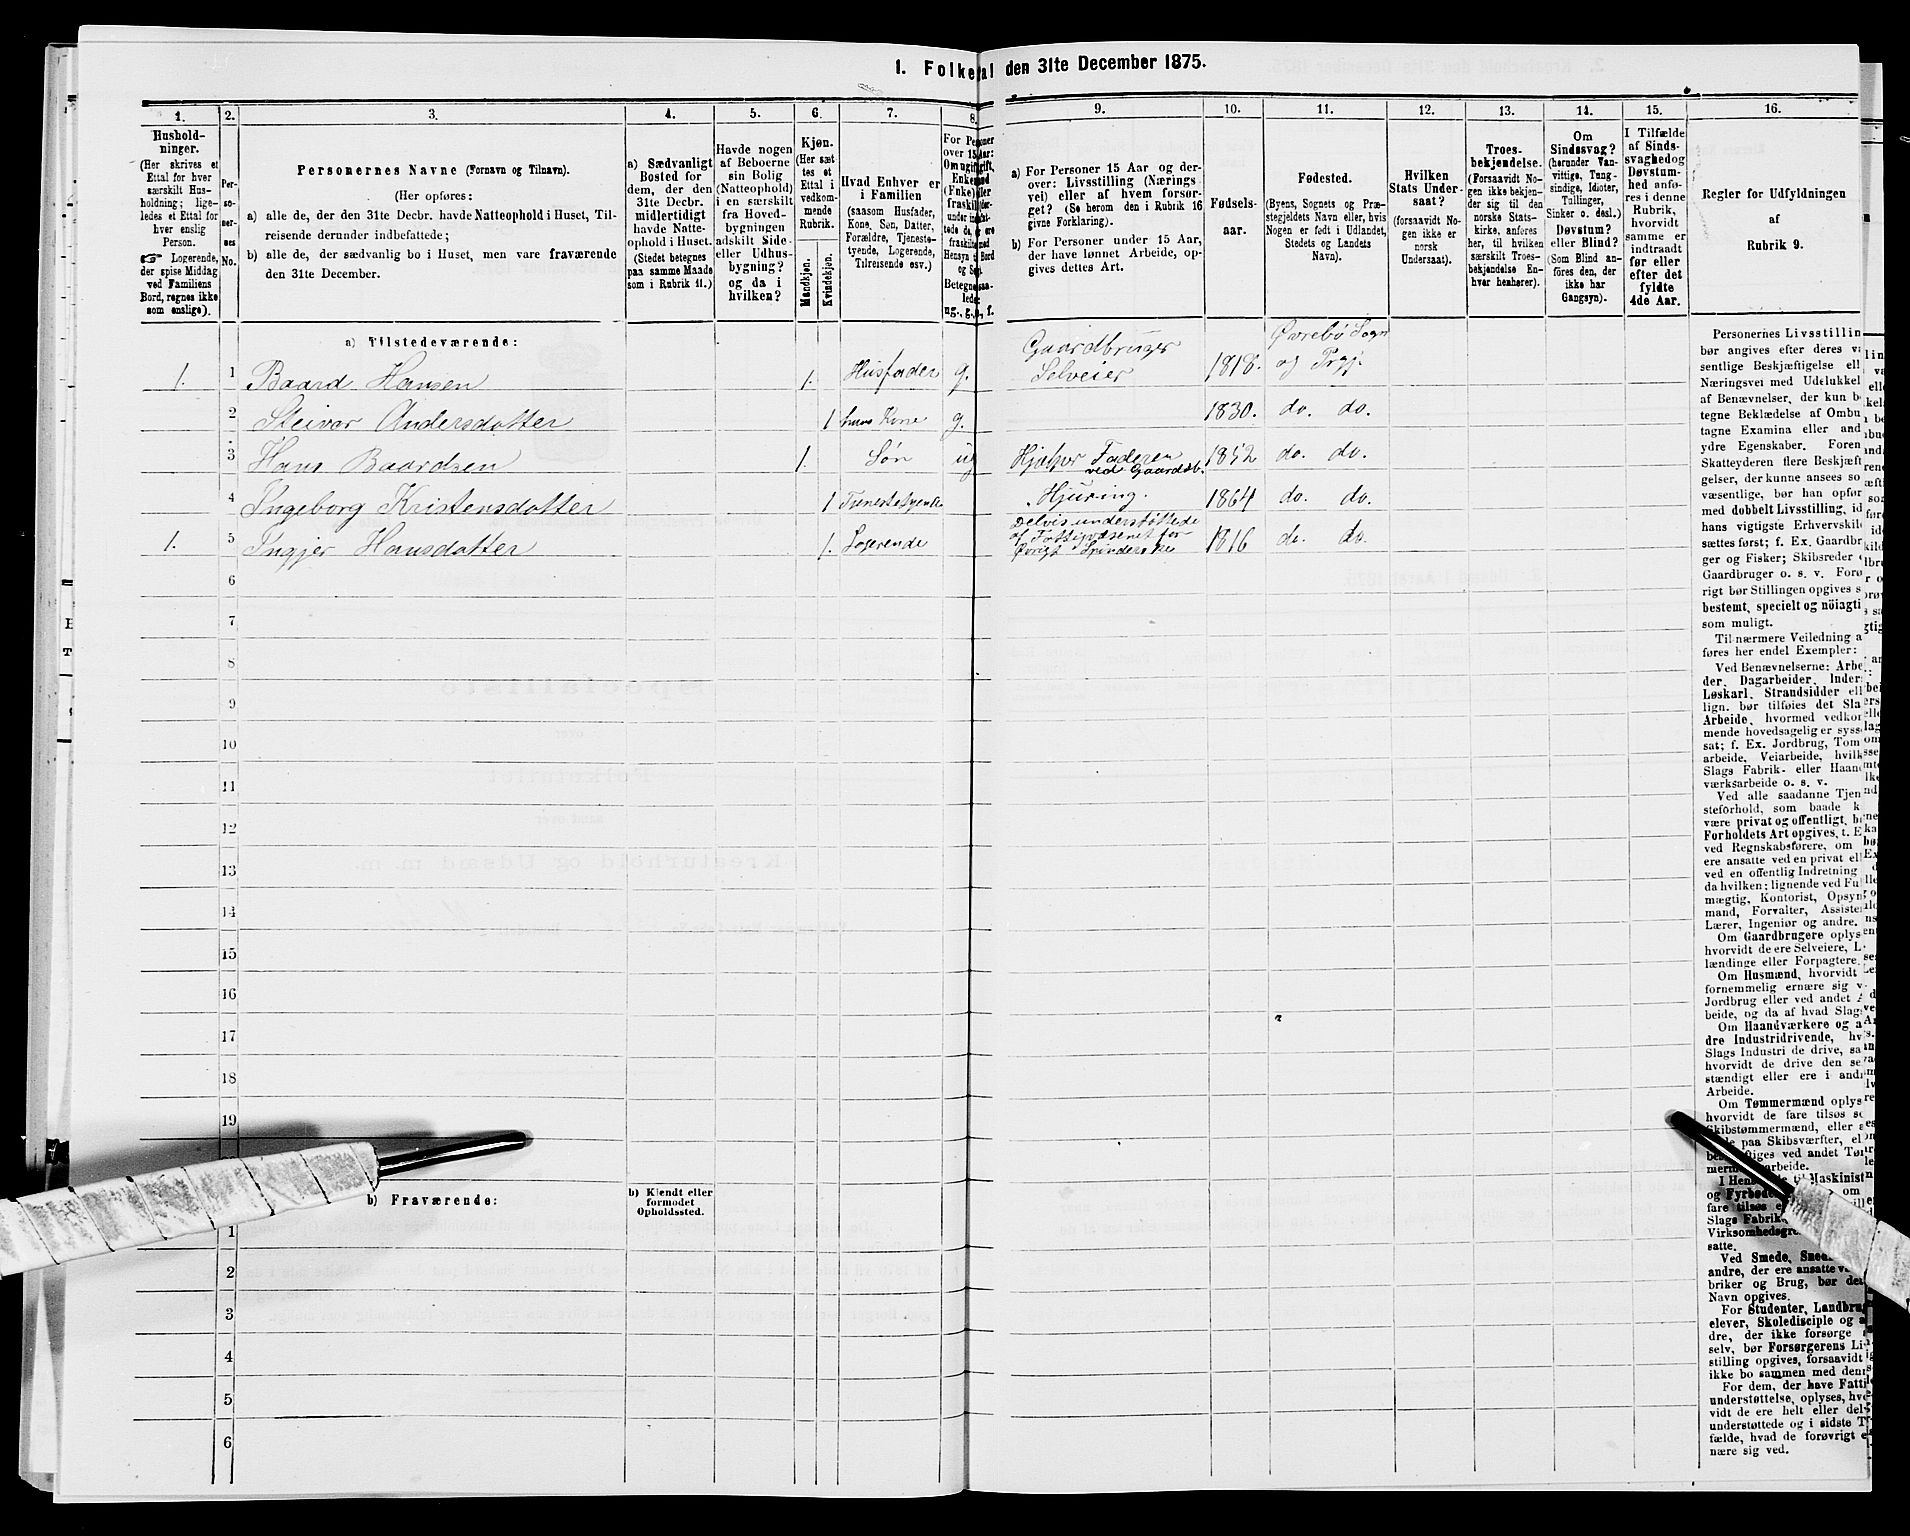 1. Folketal den 31te December 1875.
1.
Hushold-
ninger.
(Her skrives et
Ettal for hver
særskilt Hus-
holdning; lige-
ledes et Ettal for
hver enslig
Person.
☞ Logerende,
der spise Middag
ved Familiens
Bord, regnes ikke
som enslige).
2.
Per-
so-
ner-
nes
No.
3.
Personernes Navne (Fornavn og Tilnavn).
(Her opføres:
a) alle de, der den 31te Decbr. havde Natteophold i Huset, Til-
reisende derunder indbefattede;
b) alle de, der sædvanlig bo i Huset, men vare fraværende
den 31te December.
4.
a) Sædvanligt
Bosted for
dem, der den
31te Decbr.
midlertidigt
havde Natte-
ophold i Huset.
(Stedet betegnes
paa samme Maade
som i Rubrik 11.)
5.
Havde nogen
af Beboerne
sin Bolig
(Natteophold)
i en særskilt
fra Hoved-
bygningen
adskilt Side-
eller Udhus-
bygning?
og da i
hvilken?
6.
Kjøn.
(Her sæt
tes et
Ettal i
vedkom-
mende
Rubrik.
Mandkjøn.
Kvindekjøn.
7.
Hvad Enhver er
i Familien
(saasom Husfader,
Kone, Søn, Datter,
Forældre, Tjeneste-
tyende, Logerende,
Tilreisende osv.)
8.
For Personer
over 15 Aar:
Om ugift, gift,
9.
a) For Personer 15 Aar og der-
over: Livsstilling (Nærings
vei) eller af hvem forsør-
get? (Se herom den i Rubrik 16
givne Forklaring).
b) For Personer under 15 Aar,
der have lønnet Arbeide, op-
gives dettes Art.
10.
Fødsels-
aar.
11.
Fødested.
(Byens, Sognets og Præ-
stegjeldets Navn eller, hvis
Nogen er født i Udlandet,
Stedets og Landets
Navn).
12.
Hvilken
Stats Under-
saat?
(forsaavidt No-
gen ikke er
norsk
Undersaat).
13.
Troes-
bekjendelse.
(Forsaavidt No-
gen ikke bekjen-
der sig til den
norske Stats-
kirke, anføres
her, til hvilken
særskilt Troes-
bekjendelse En-
hver henhører).
14.
Om
Sindssvag?
(herunder Van-
vittige, Tung-
sindige, Idioter,
Tullinger,
Sinker o. desl.)
Døvstum?
eller Blind?
(Som Blind an-
føres den, der
ikke har
Gangsyn).
15.
I Tilfælde
af Sinds-
svaghed og
Døvstum-
hed anfø-
res i denne
Rubrik,
hvorvidt
samme er
indtraadt
før eller
efter det
fyldte
4de Aar.
16.
Regler for Udfyldningen
af
Rubrik 9.
a) Tilstedeværende:
1. 1 Baard Hansen 1. Husfader g. Gaardbruger Selveier 1818. Øvrebø Sogn og Prgj.
2 Andersdatter 1 hans Kone g. 1830. do. do.
3 Hans Baardsen 1. Søn ug Hjælper Faderen ved Gaardsb. 1852 do. do.
4 Ingeborg Kristensdatter 1 Tjenestetyende Hjuring. 1864 do. do.
1. 5 Ingjer Hansdatter 1. Logerende Delvis understøttede af Fattigvæsenet for Øvrigt Spinderske 1816 do. do.
6
7
8
9
10
11
12
13
14
15
16
17
18
19
b) Fraværende:
b) Kjendt eller
formodet
Opholdssted.
1
2
3
4
5
6
Personernes Livsstillin
bør angives efter deres
sentlige Beskjæftigelse ell
Næringsvei med Udelukkel
af Benævnelser, der kun
tegne Beklædelse af Ombu
tagne Examina eller and
ydre Egenskaber. Foren
Skatteyderen flere Beskjæft
gelser, der kunne ansees so
væsentlige, bør han opfør
med dobbelt Livsstilling, id
hans vigtigste Erhvervskild
sættes først; f. Ex. Gaardbr
ger og Fisker; Skibsreder
Gaardbruger o. s. v. Forø
rigt bør Stillingen opgives s
bestemt, specielt og nöiagti
som muligt.
Til nærmere Veiledning a
føres her endel Exempler:
Ved Benævnelserne: Arbe
der, Dagarbeider, Inder
Løskarl, Strandsidder ell
lign. bør tilføies det Sla
Arbeide, hvormed vedkom
mende hovedsagelig er sysse
sat; f. Ex. Jordbrug, Tom
arbeide, Veiarbeide, hvilk
Slags Fabrik- eller Haan
værksarbeide o. s. v.
Ved alle saadanne Tjen
steforhold, som baade k
være privat og offentligt, b
Forholdets Art opgives, t. E
ved Regnskabsførere, om
ere ansatte ved en privat ell
ved en offentlig Indretning
da hvilken; lignende ved Ful
mægtig, Kontorist, Opsyn
mand, Forvalter, Assisten
Lærer, Ingeniør og andre.
Om Gaardbrugere oplys
hvorvidt de ere Selveiere, L
lændinge eller Forpagtere.
Om Husmænd, hvorvidt
fornemmelig ernære sig v
Jordbrug eller ved andet A
beide, og da af hvad Slags
Om Haandværkere og a
dre Industridrivende, hv
Slags Industri de drive, sa
hvorvidt de drive den se
stændigt eller ere i andr
Arbeide.
Om Tømmermænd oplys
hvorvidt de fare tilsøs so
Skibstømmermænd, eller
paa Skibsværfter, el
ved andet Tøm
arbeide.
Maskinist
og
fare tilsøs
Slags Fabrik
Virksomhedsgren
satte.
Ved Smede,
andre, der ere ansatte
briker og Brug, bør det
Navn opgives.
For Studenter, Landbrug
elever, Skoledisciple og a
dre, der ikke forsørge
selv, bør Forsørgerens Li
stilling opgives, forsaavidt
ikke bo sammen med dem
For dem, der have Fatti
understøttelse, oplyses, hv
vidt de ere helt eller del
understøttede og i sidste T
fælde, hvad de forøvrigt e
nære sig ved.